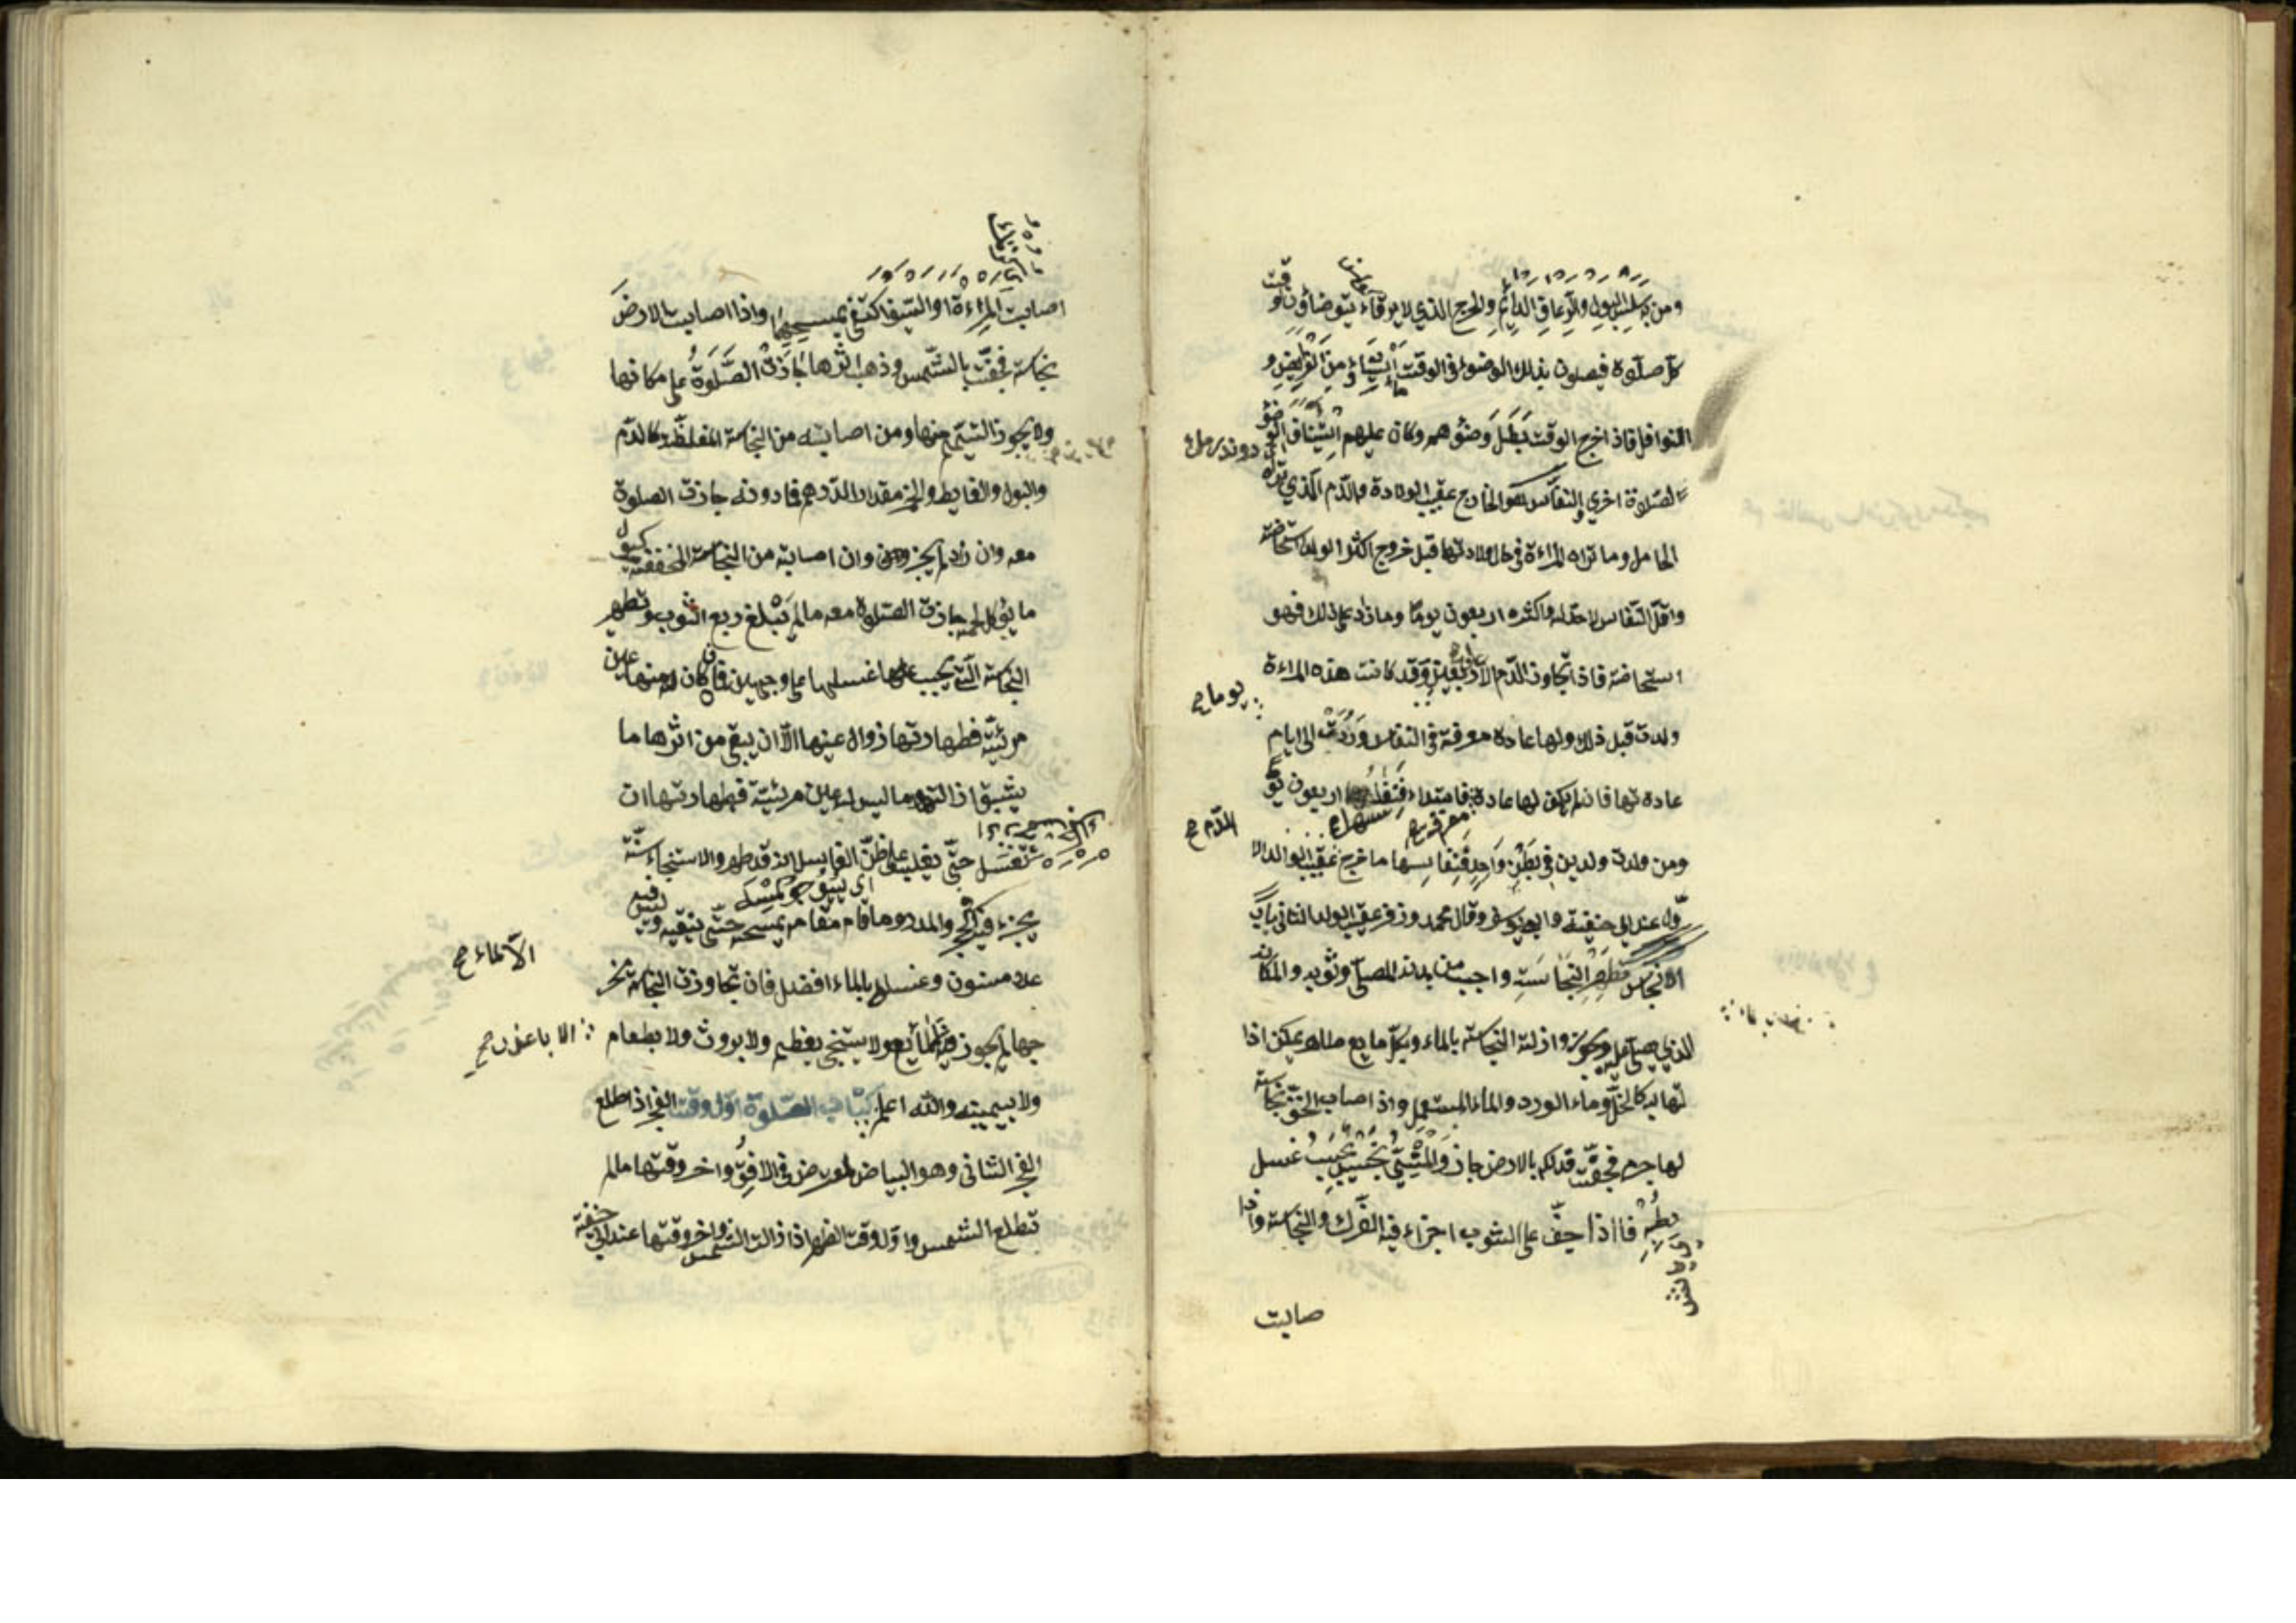 ومن به سلس البول والرعاف الدائم والجرح الذي لا يرقاء يتوضاؤن لوقت
كل صلوة فيصلون بذلك الوضوء في الوقت ما شاؤا من الفرايض و
النوافل فاذا خرج الوقت بطل وضؤهم وكان عليهم استيناف الوضوء
لصلاوة اخري والنفاس هو الخارج عقيب الولادة والدم الذي تراه
الحامل وما تراه المراءة في حال ولادتها قبل خروج اكثر الولد استحاضة
واقل النفاس لا حد له واكثره اربعون يوما وما زاد على ذلك فهو
استحاضة فاذا تجاوز الدم الاربعين وقد كانت هذه المراءة
يوما صح
ولدت قبل ذلك ولها عادة معروفة في النفاس وردت الى ايام
عادتها فان لم يكن لها عادة فابتداء نفاسها اربعون يوما
معروفة
الدم صح
ومن ولدت ولدين في بطن واحد فنفاسها ما خرج عقيب الولد الا
ول عند ابي حنيفة وابي يوسف وقال محمد وزفر عقيب الولد الثاني باب
الانجاس تطهير النجاسة واجب من بدن المصلي وثوبه والمكان
الذي يصلي عليه ويجوز ازلة النجاسة بالماء وبكل مايع طاهر يمكن ازا
لتها به كالخل وماء الورد والماء المستعمل واذا اصاب الخف نجاسة
لها جرم فجفت فدلكه بالارض جاز والمني نجس يجب غسل
رطبه فااذا جف على الثوب اجزاء فيه الفرك والنجاسة واذا
صابت
اصابت المراءة او السيف اكتفي بمسحهما واذا اصابت الارض
نجاسة فجفت بالشمس وذهب اثرها جازت الصلوة على مكانها
ولا يجوز التيمم منها ومن اصابته من النجاسة المغلظة كالدم
والبول والغايط والخمر مقدار الدرهم فما دونه جازت الصلوة
معه وان زاد لم يجز وان اصابته من النجاسة المخففة كبول
ما يؤكل لحمه جازت الصلوة معه ما لم يبلغ ربع الثوب وتطهير
النجاسة التي يجب غسلها على وجهين فما كان له منها عين
مرئية فطهارتها زوال عينها الا ان يبقي من اثرها ما
يشق ازالتها وما ليس له عين مرئية فطهارتها ان
تغسل حتى يغلب على ظن الغاسل انه قد طهر والاستنجاء سنة
يجزء فيه الحجر والمدر وما قام مقامه يمسحه حتى ينقيه وليس فيه
عدد مسنون وغسله بالماء افضل فان تجاوزت النجاسة مخر
الا الماء صح
جها لم يجوز فيه المايع ولا يستنجي بعظم ولا بروث ولا بطعام
الا باعذر صح
ولا بيمينه والله اعلم كتاب الصلوة اول وقت الفجر اذا طلع
الفجر الثاني وهو البياض المعترض في الافق واخر وقتها ما لم
تطلع الشمس واول وقت الظهر اذا زالت الشمس واخر وقتها عند ابي حنيفة